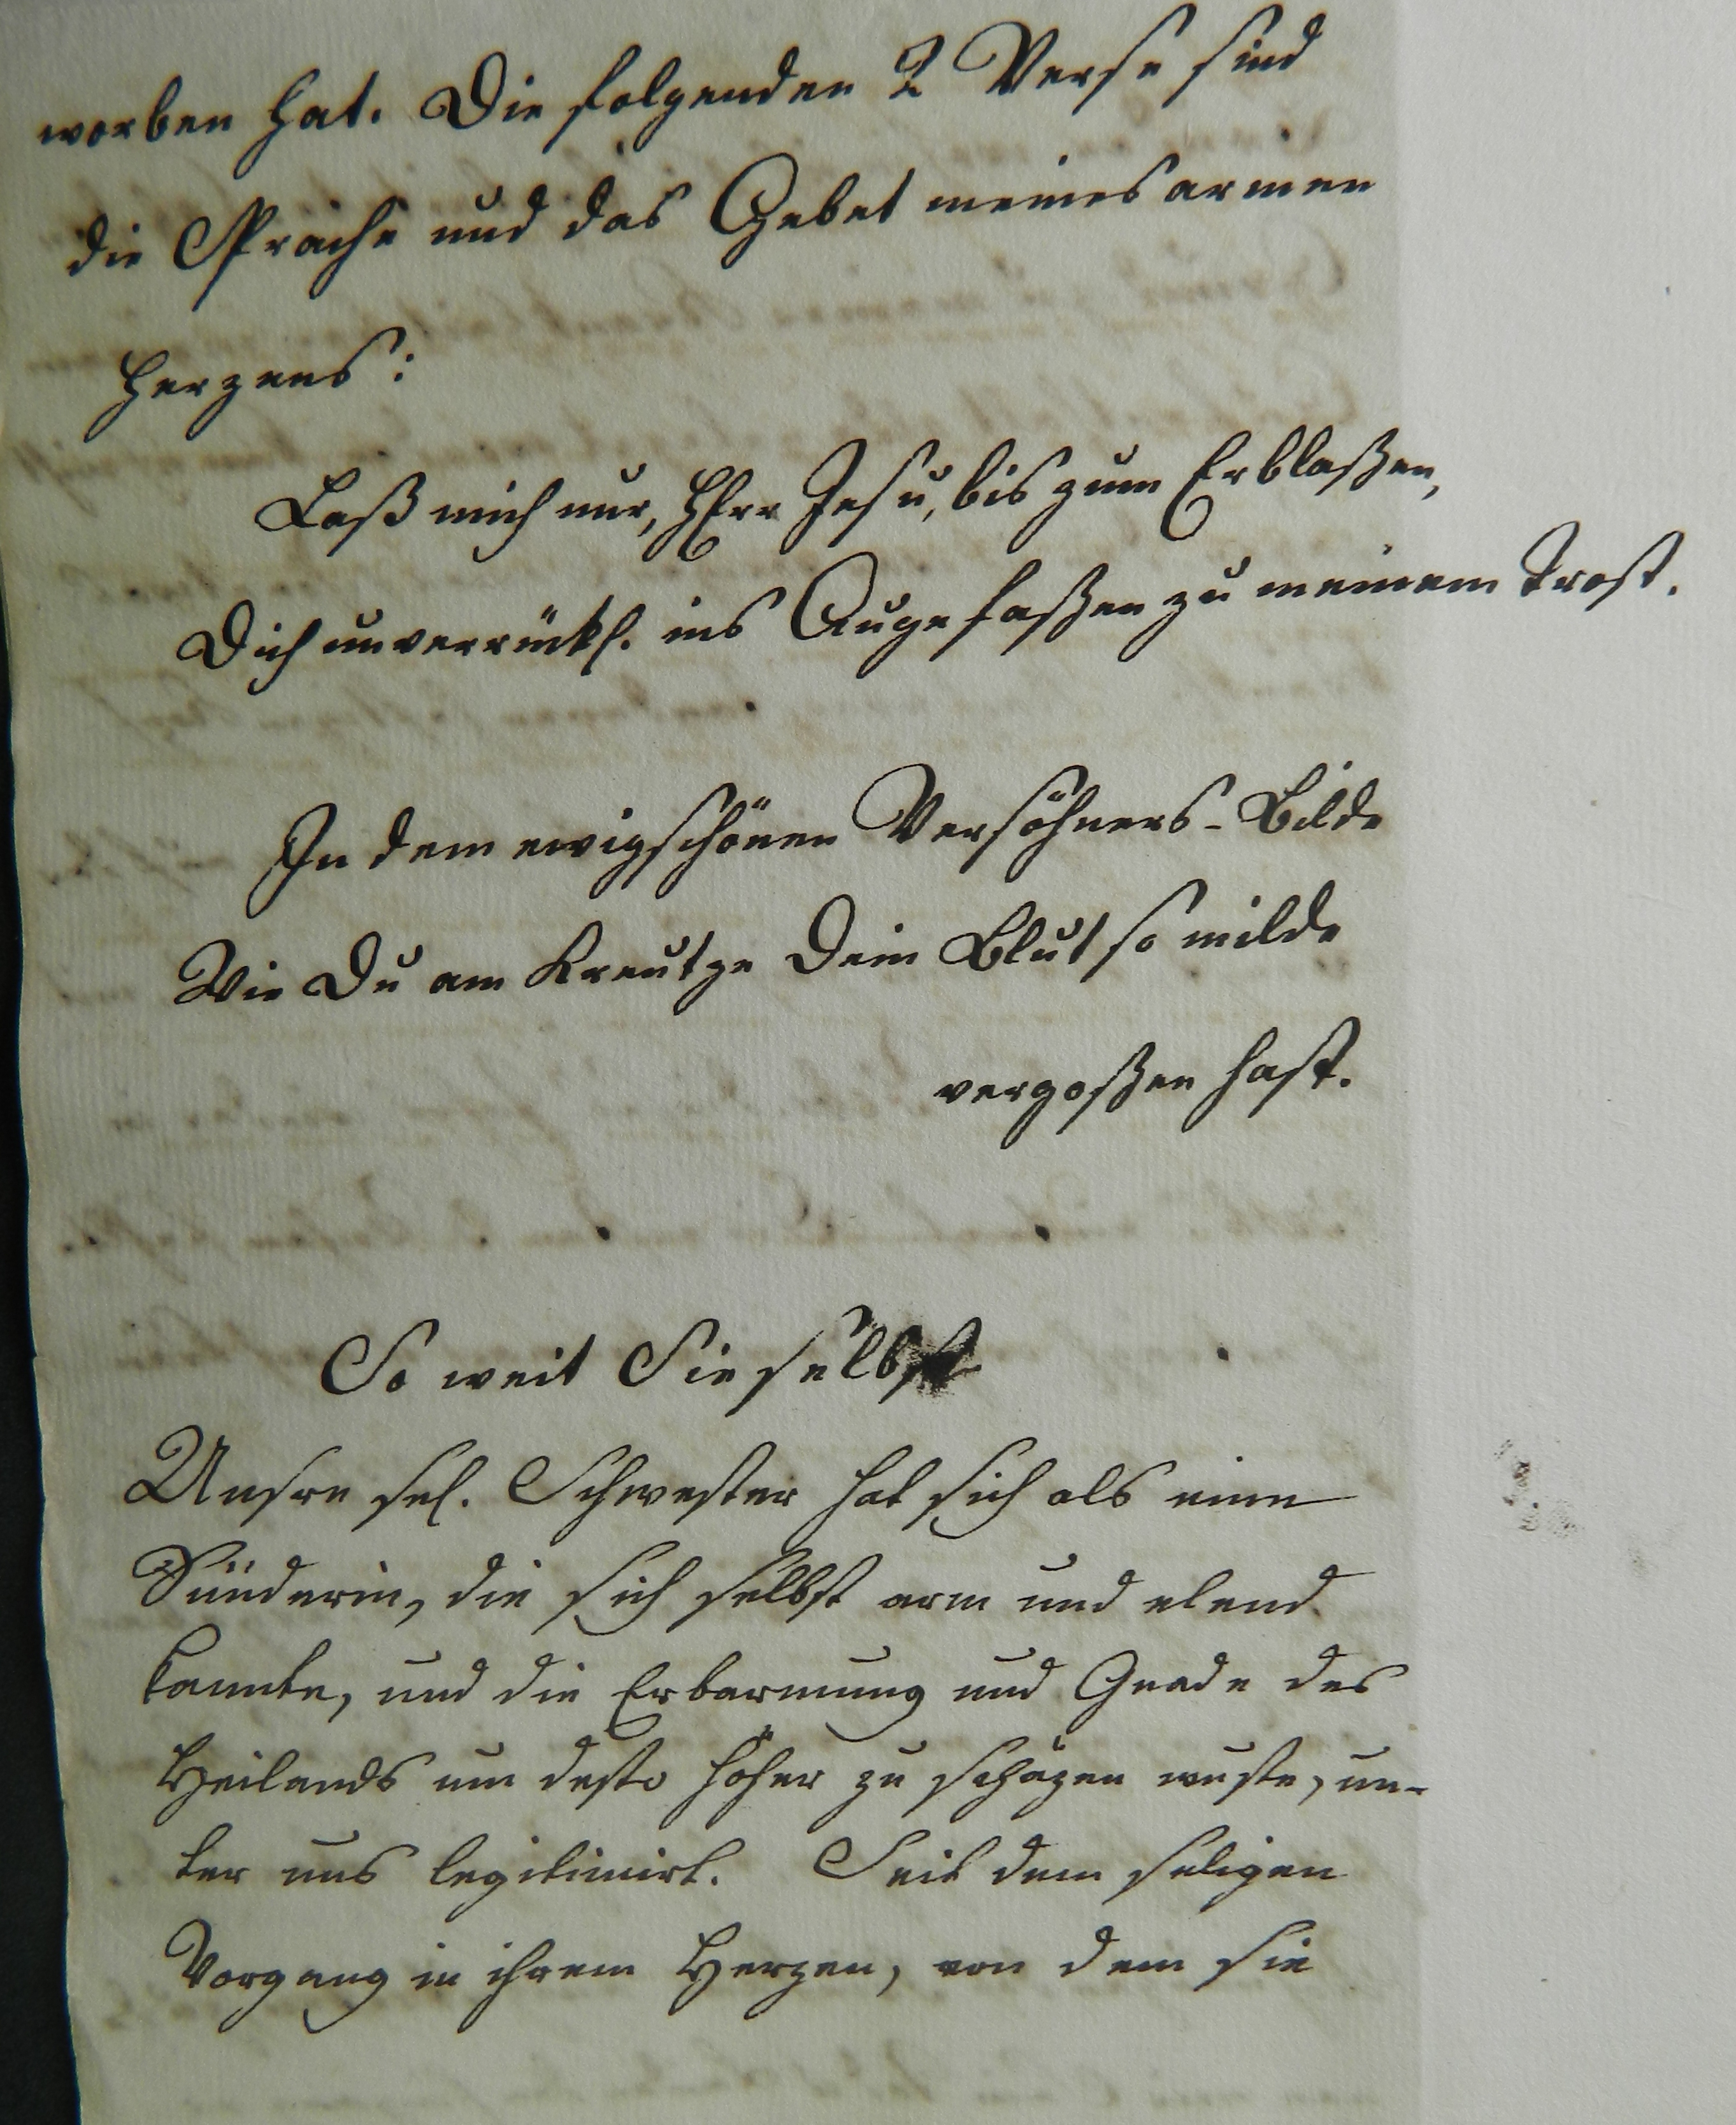 worben hat. Die folgenden 2 Verse sind
die Sprache und das Gebet meines armen
Herzens:
Laß mich nur, HErr Jesu, bis zum Erblaßen,
Dich unverrückl. ins Auge faßen zu meinem Trost.
In dem ewigschönen Versöhners-Bilde
Wie Du am Kreutze Dein Blut so milde
vergoßen hast.
So weit Sie selbst
Unsre sel. Schwester hat sich als eine
Sünderin, die sich selbst arm und elend
kannte, und die Erbarmung und Gnade des
Heilands um desto höher zu schäzen wuste, un-
ter uns legitimirt. Seit dem seligen
Vorgang in ihrem Herzen, von dem sie